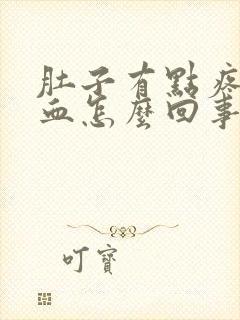 肚子有點疼
血怎麼回事
叮寶